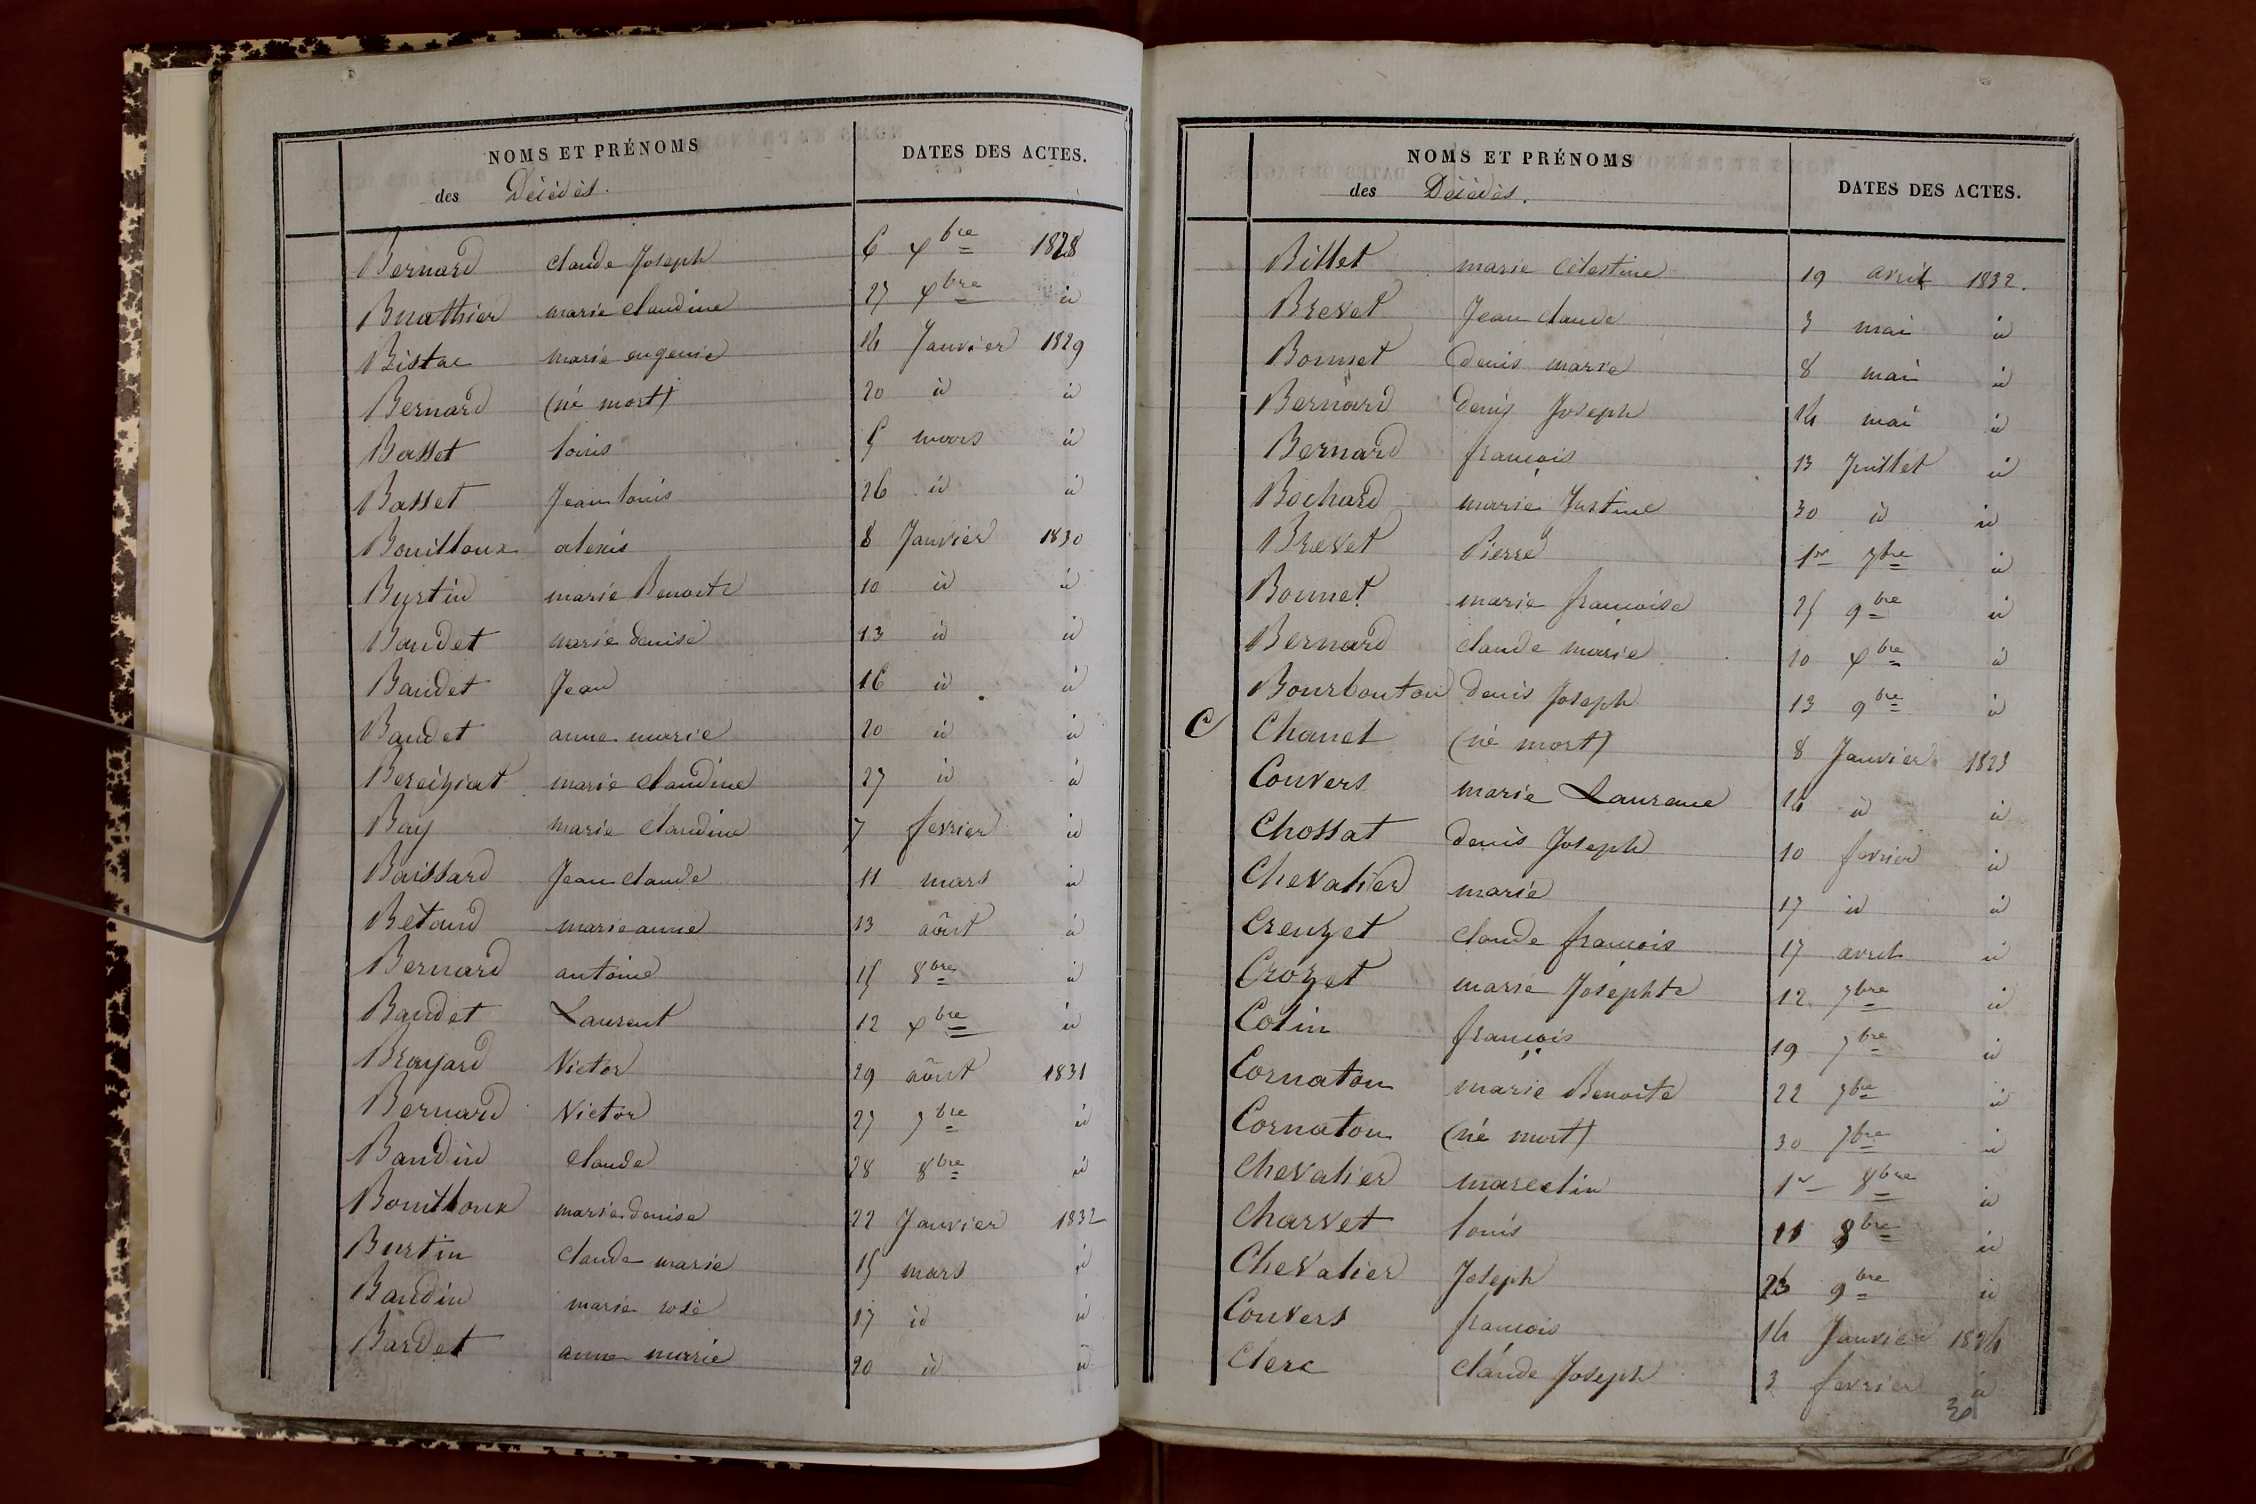 NOMS ET PRÉNOMS
des Décédés.
DATES DES ACTES.
Bernard claude Joseph 6 xbre 1828
Buathier marie claudine 27 xbre id
Bistac marie eugenie 14 Janvier 1829
Bernard (né mort) 20 id id
Basset louis 5 mars id
Basset Jean louis 26 id id
Bouilloux alexis 8 Janvier 1830
Byrtin marie Benoite 10 id id
Baudet marie denise 13 id id
Baudet Jean 16 id id
Baudet anne marie 20 id id
Bereiziat marie claudine 27 id id
Bay marie claudine 7 fevrier id
Baissard Jean claude 11 mars id
Bétoud marie anne 13 août id
Bernard antoine 15 8bre id
Baudet Laurent 12 xbre id
Brayard Victor 29 août 1831
Bernard Victor 27 7bre id
Baudin claude 28 8bre id
Bouilloux marie denise 22 Janvier 1832
Burtin claude marie 15 mars id
Baudin marie rose 17 id id
Bardet anne marie 20 id id
NOMS ET PRÉNOMS
des Décédés.
DATES DES ACTES.
Billet marie célestine 19 avril 1832.
Brevet Jean claude 3 mai id
Bonnet denis marie 8 mai id
Bernard denis Joseph 14 mai id
Bernard françois 13 Juillet id
Bochard marie Justine 30 id id
Brevet Pierre 1er 7bre id
Bonnet marie françoise 25 9bre id
Bernard claude marie 10 xbre id
Bourbouton denis Joseph 13 9bre id
C Chanel (né mort) 8 Janvier 1823
Convers marie Laurence 14 id id
Chossat denis Joseph 10 fevrier id
Chevalier marie 17 id id
Creuzet claude françois 17 avril id
Crozet marie Josephte 12 7bre id
Colin françois 19 7bre id
Cornaton marie Benoite 22 7bre id
Cornaton (né mort) 30 7bre id
Chevalier marcelin 1er 8bre id
Charvet louis 11 8bre id
Chevalier Joseph 23 9bre id
Convers françois 14 Janvier 1824
Clerc claude Joseph 3 fevrier id